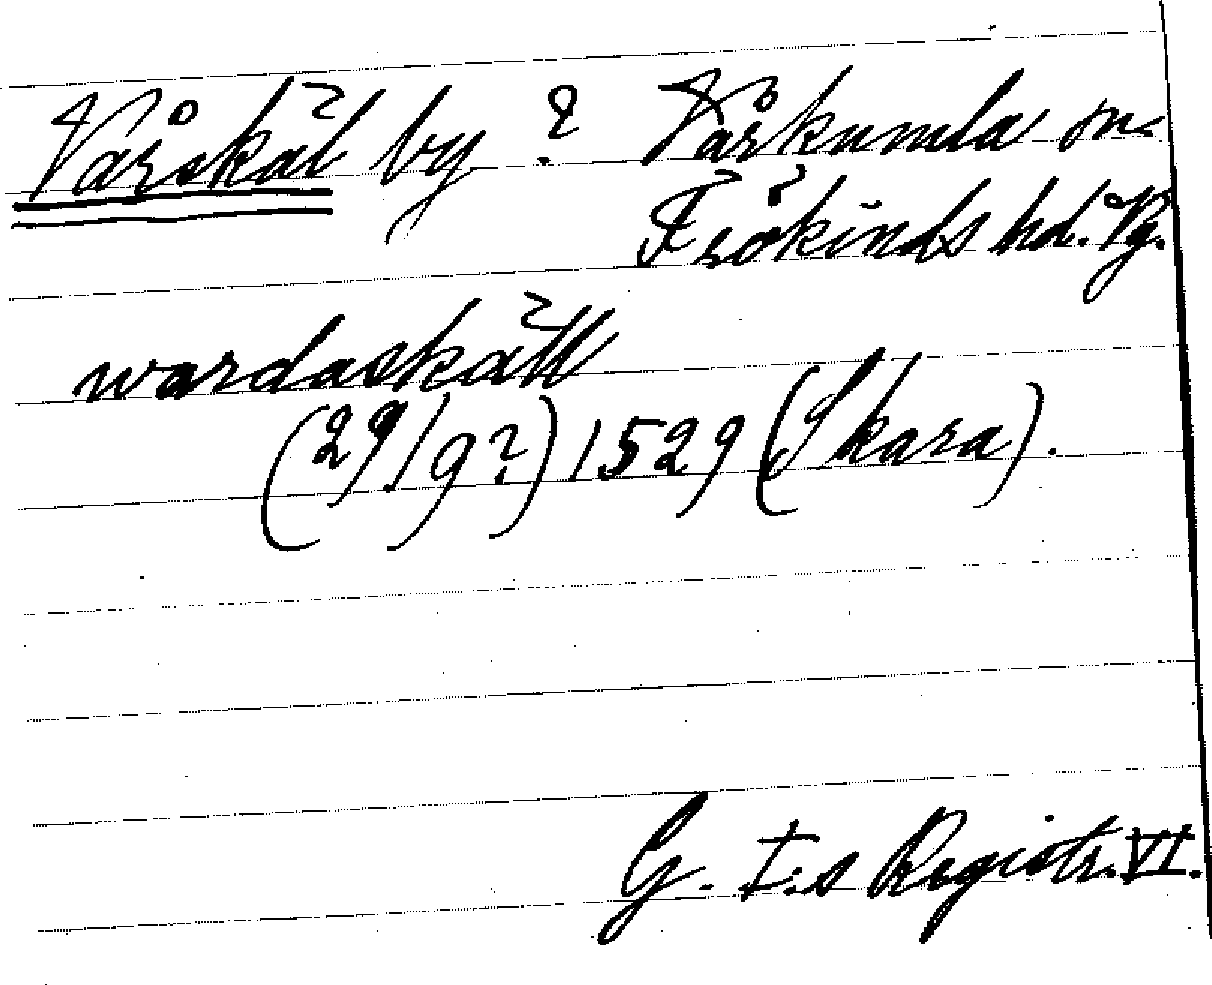 Vårskäl by ? Vårkumla sn
Frökinds hd. Vg.
wardaskäll
(29/9?) 1529 (Skara).
G. I:s Registr. VI.